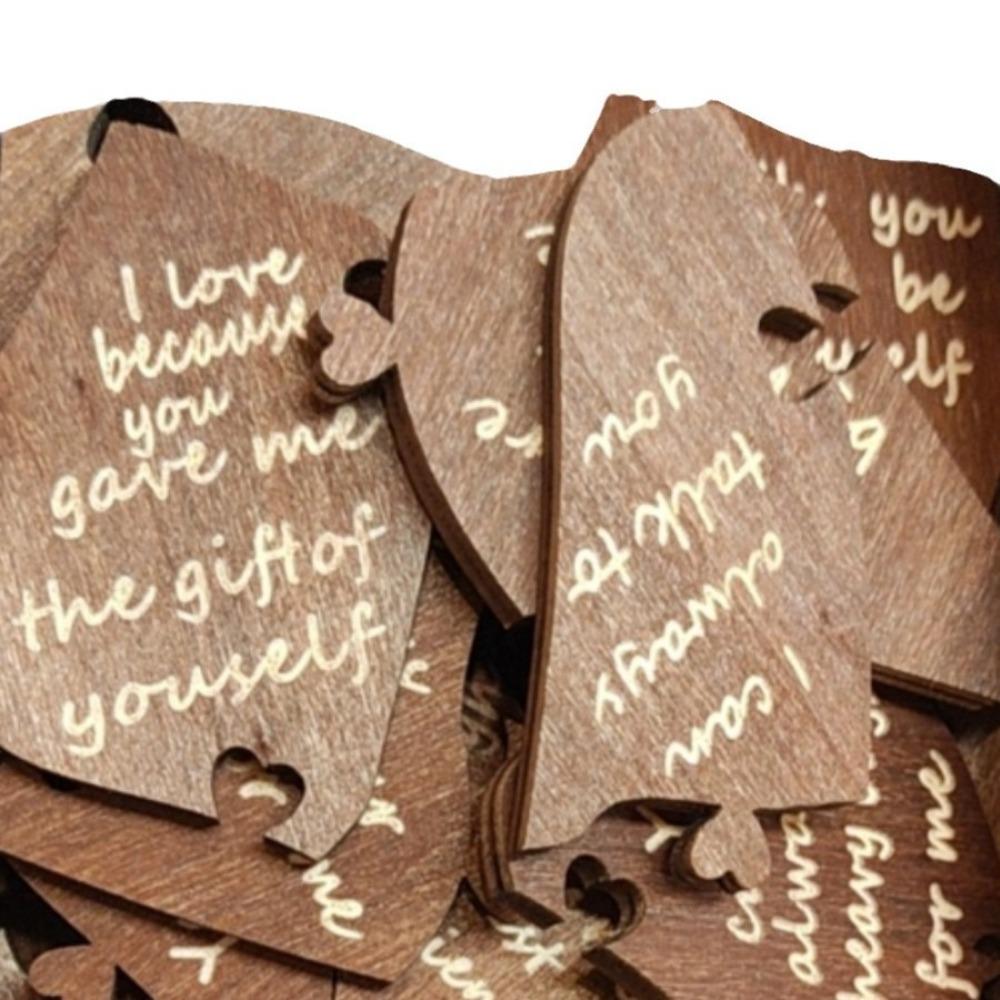 I love
because
you
gave me
the gift of
youself
I can
always
talk to
you
you
be
elf
me
alwa
heavy
for me